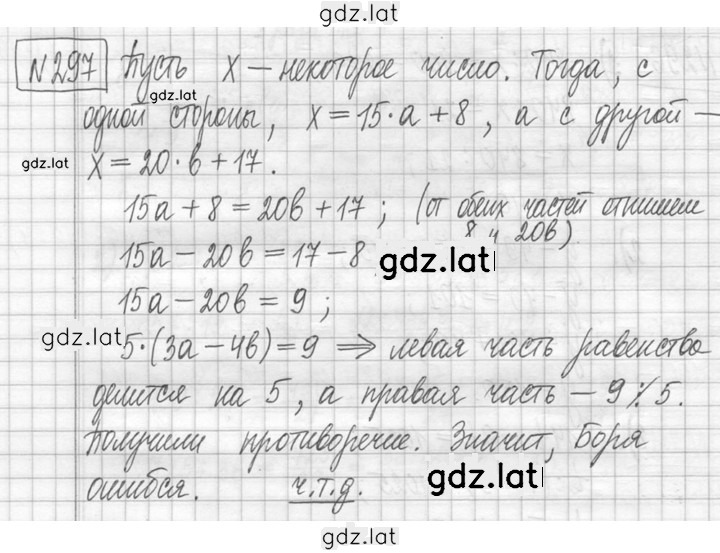 gdz.lat
№297 Пусть x – некоторое число. Тогда, с
gdz.lat
одной стороны, x = 15·a + 8, а с другой –
gdz.lat x = 20·b + 17.
15a + 8 = 20b + 17; (от обеих частей отнимем
8 и 20b)
15a – 20b = 17 – 8
gdz.lat
15a – 20b = 9;
gdz.lat
5·(3a – 4b) = 9 ⟹ левая часть равенства
делится на 5, а правая часть – 9 ⁒ 5.
Получили противоречие. Значит, Боря
ошибся. ч.т.д.
gdz.lat
gdz.lat